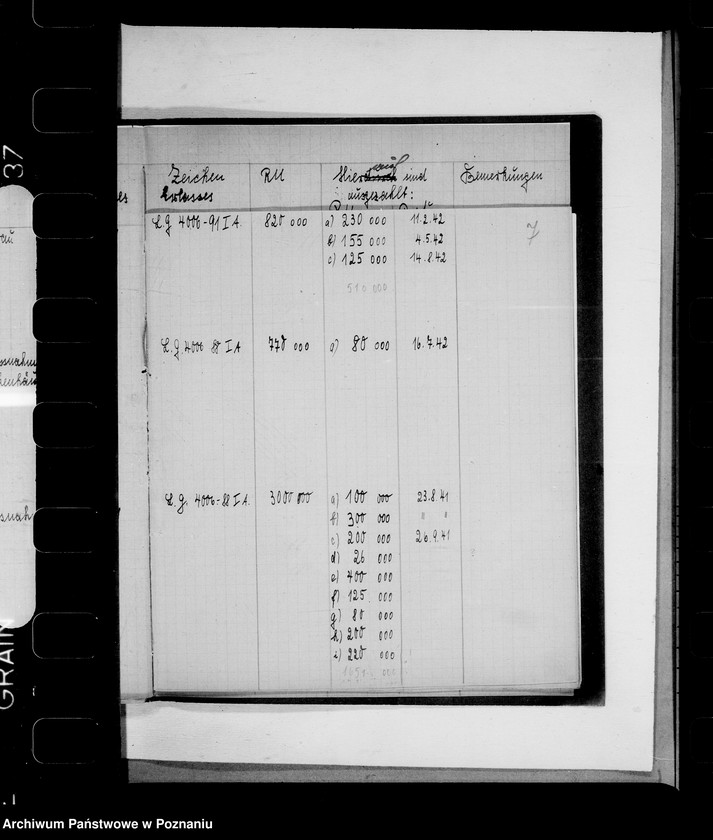 37
Zeichen RM Hierdurch auf sind Bemerkungen
Erlasses ausgezahlt:
L.G. 4006-91 I A. 820 000 a) 230 000 11.2.42
b) 155 000 4.5.42 7
c) 125 000 14.8.42
510 000
L.G. 4006 88 I A 770 000 a) 80 000 16.7.42
L.G. 4006-88 I A. 3000 000 a) 100 000 23.8.41
b) 300 000 " "
c) 200 000 26.9.41
d) 26 000
e) 400 000
f) 125 000
g) 80 000
h) 200 000
i) 220 000
GRAIN
Archiwum Państwowe w Poznaniu